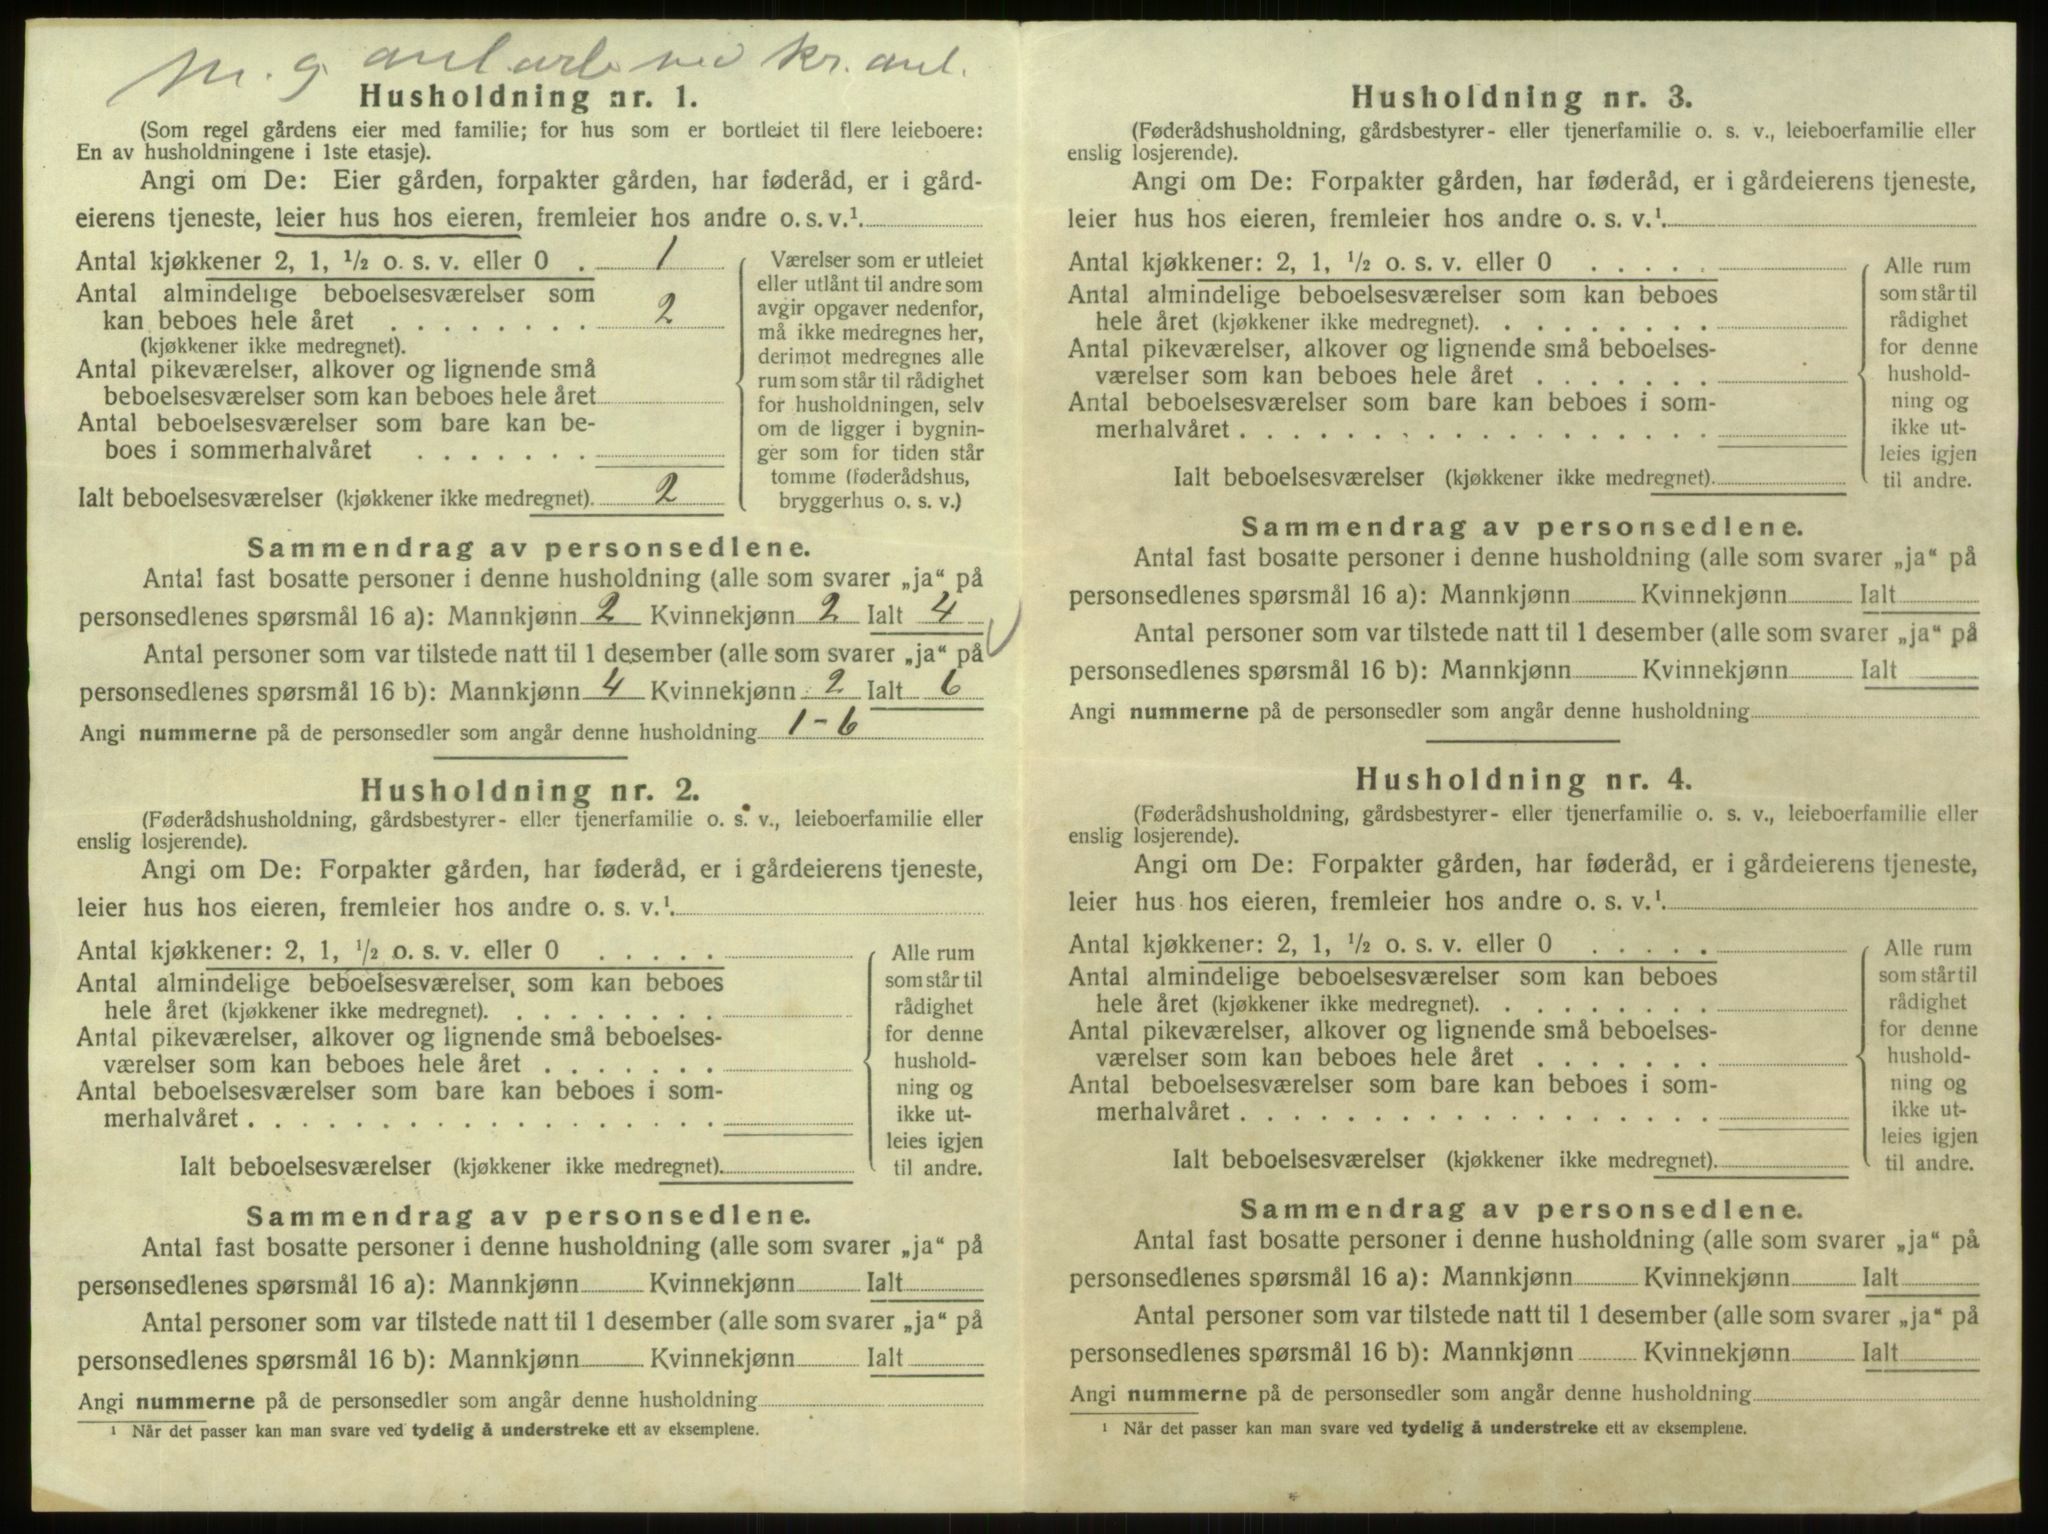 M. g anl.arb ved kr. anl.
Husholdning nr. 1.
(Som regel gårdens eier med familie; for hus som er bortleiet til flere leieboere:
En av husholdningene i 1ste etasje).
Angi om De: Eier gården, forpakter gården, har føderåd, er i gård-
eierens tjeneste, leier hus hos eieren, fremleier hos andre o. s. v.¹
Antal kjøkkener 2, 1, ½ o. s. v. eller 0 . 1
Antal almindelige beboelsesværelser som
kan beboes hele året . . . . . . . . 2
(kjøkkener ikke medregnet).
Antal pikeværelser, alkover og lignende små
beboelsesværelser som kan beboes hele året
Antal beboelsesværelser som bare kan be-
boes i sommerhalvåret . . . . . . .
Ialt beboelsesværelser (kjøkkener ikke medregnet). 2
Værelser som er utleiet
eller utlånt til andre som
avgir opgaver nedenfor,
må ikke medregnes her,
derimot medregnes alle
rum som står til rådighet
for husholdningen, selv
om de ligger i bygnin-
ger som for tiden står
tomme (føderådshus,
bryggerhus o. s. v.)
Sammendrag av personsedlene.
Antal fast bosatte personer i denne husholdning (alle som svarer „ja“ på
personsedlenes spørsmål 16 a): Mannkjønn 2 Kvinnekjønn 2 Ialt 4
Antal personer som var tilstede natt til 1 desember (alle som svarer „ja“ på
personsedlenes spørsmål 16 b): Mannkjønn 4 Kvinnekjønn 2 Ialt 6
Angi nummerne på de personsedler som angår denne husholdning 1-6
Husholdning nr. 2.
(Føderådshusholdning, gårdsbestyrer- eller tjenerfamilie o. s. v., leieboerfamilie eller
enslig losjerende).
Angi om De: Forpakter gården, har føderåd, er i gårdeierens tjeneste,
leier hus hos eieren, fremleier hos andre o. s. v.¹
Antal kjøkkener: 2, 1, ½ o. s. v. eller 0 . . . . .
Antal almindelige beboelsesværelser som kan beboes
hele året (kjøkkener ikke medregnet). . . . . . . . .
Antal pikeværelser, alkover og lignende små beboelses-
værelser som kan beboes hele året . . . . . . .
Antal beboelsesværelser som bare kan beboes i som-
merhalvåret . . . . . . . . . . . . . . . . . .
Ialt beboelsesværelser (kjøkkener ikke medregnet).
Alle rum
som står til
rådighet
for denne
hushold-
ning og
ikke ut-
leies igjen
til andre.
Sammendrag av personsedlene.
Antal fast bosatte personer i denne husholdning (alle som svarer „ja“ på
personsedlenes spørsmål 16 a): Mannkjønn Kvinnekjønn Ialt
Antal personer som var tilstede natt til 1 desember (alle som svarer „ja“ på
personsedlenes spørsmål 16 b): Mannkjønn Kvinnekjønn Ialt
Angi nummerne på de personsedler som angår denne husholdning
¹ Når det passer kan man svare ved tydelig å understreke ett av eksemplene.
Husholdning nr. 3.
(Føderådshusholdning, gårdsbestyrer- eller tjenerfamilie o. s. v., leieboerfamilie eller
enslig losjerende).
Angi om De: Forpakter gården, har føderåd, er i gårdeierens tjeneste,
leier hus hos eieren, fremleier hos andre o. s. v.¹
Antal kjøkkener: 2, 1, ½ o. s. v. eller 0 . . . . .
Antal almindelige beboelsesværelser som kan beboes
hele året (kjøkkener ikke medregnet). . . . . . . . .
Antal pikeværelser, alkover og lignende små beboelses-
værelser som kan beboes hele året . . . . . . .
Antal beboelsesværelser som bare kan beboes i som-
merhalvåret . . . . . . . . . . . . . . . . . .
Ialt beboelsesværelser (kjøkkener ikke medregnet).
Alle rum
som står til
rådighet
for denne
hushold-
ning og
ikke ut-
leies igjen
til andre.
Sammendrag av personsedlene.
Antal fast bosatte personer i denne husholdning (alle som svarer „ja“ på
personsedlenes spørsmål 16 a): Mannkjønn Kvinnekjønn Ialt
Antal personer som var tilstede natt til 1 desember (alle som svarer „ja“ på
personsedlenes spørsmål 16 b): Mannkjønn Kvinnekjønn Ialt
Angi nummerne på de personsedler som angår denne husholdning
Husholdning nr. 4.
(Føderådshusholdning, gårdsbestyrer- eller tjenerfamilie o. s. v., leieboerfamilie eller
enslig losjerende).
Angi om De: Forpakter gården, har føderåd, er i gårdeierens tjeneste,
leier hus hos eieren, fremleier hos andre o. s. v.¹
Antal kjøkkener: 2, 1, ½ o. s. v. eller 0 . . . . .
Antal almindelige beboelsesværelser som kan beboes
hele året (kjøkkener ikke medregnet). . . . . . . . .
Antal pikeværelser, alkover og lignende små beboelses-
værelser som kan beboes hele året . . . . . . .
Antal beboelsesværelser som bare kan beboes i som-
merhalvåret . . . . . . . . . . . . . . . . . .
Ialt beboelsesværelser (kjøkkener ikke medregnet).
Alle rum
som står til
rådighet
for denne
hushold-
ning og
ikke ut-
leies igjen
til andre.
Sammendrag av personsedlene.
Antal fast bosatte personer i denne husholdning (alle som svarer „ja“ på
personsedlenes spørsmål 16 a): Mannkjønn Kvinnekjønn Ialt
Antal personer som var tilstede natt til 1 desember (alle som svarer „ja“ på
personsedlenes spørsmål 16 b): Mannkjønn Kvinnekjønn Ialt
Angi nummerne på de personsedler som angår denne husholdning
¹ Når det passer kan man svare ved tydelig å understreke ett av eksemplene.